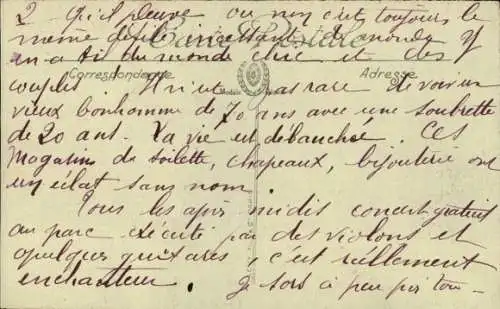 2 Qu'il pleuve ou non c'est toujours le
même défilé incessant de monde y
Carte Postale
en a t-il du monde chic et des
Correspondance
Adresse
couples Il n'est pas rare de voir un
vieux bonhomme de 70 ans avec une soubrette
de 20 ans. La vie est débauchée. Ces
Magasins de toilette, chapeaux, bijouterie ont
un éclat sans nom.
Tous les après midis concert gratuit
au parc exécuté par des violons et
quelques guitares, c'est réellement
enchanteur. Je sors à peu près tou-